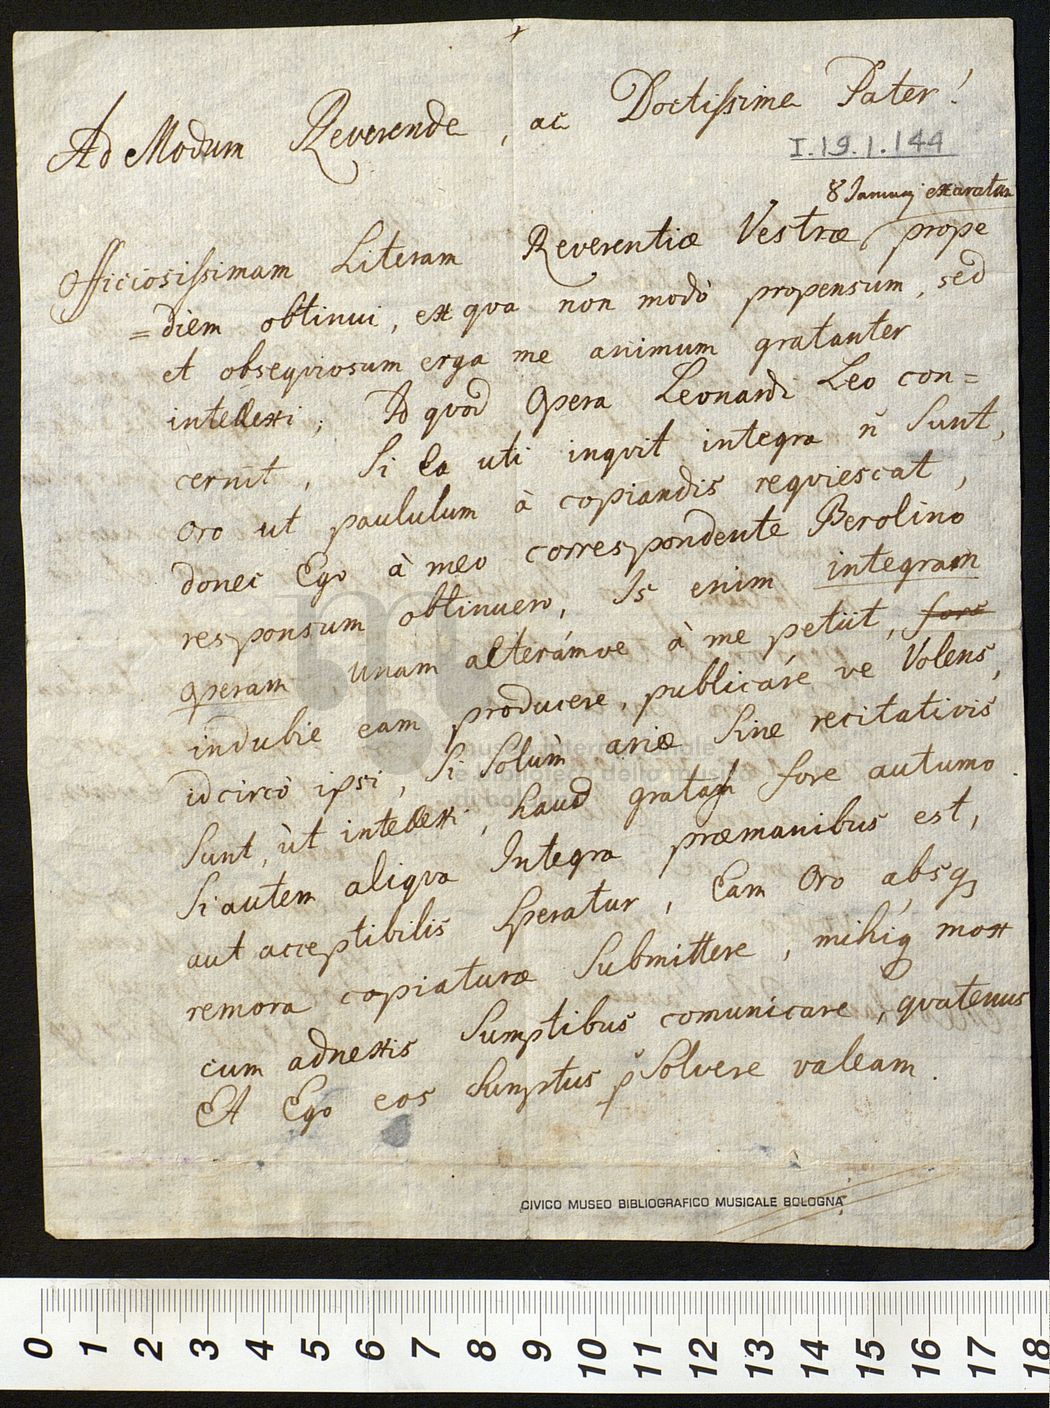 Ad Modum Reverende, ac Doctissime Pater!
I.19.1.144
8 Januarij exaratam
Officiosissimam Literam Reverentiæ Vestræ prope
=diem obtinui, ex qva non modò propensum, sed
et obseqviosum erga me animum gratanter
intellexi; Ad qvod Opera Leonardi Leo con=
cernit, Si Ea uti inqvit integra ñ Sunt,
Oro ut paululum à copiandis reqviescat,
donec Ego à meo correspondente Berolino
responsum obtinuero, Is enim integram
operam unam alterámve à me petiit, fors
indubie eam producere, publicáre ve Volens,
idcircò ipsi, Si Solùm ariæ Sine recitativis
Sunt, ùt intellexi, haud gratam fore autumo.
Si autem aliqva Integra præmanibus est,
aut acceptibilis Speratur, Eam Oro, absq
remora copiaturæ Submittere, mihiq mox
cum adnexis Sumptibus comunicare, qvatenus
Et Ego eos Sumptus p̃ Solvere valeam.
museo internazionale
e biblioteca della musica
di bologna
CIVICO MUSEO BIBLIOGRAFICO MUSICALE BOLOGNA
0 1 2 3 4 5 6 7 8 9 10 11 12 13 14 15 16 17 18